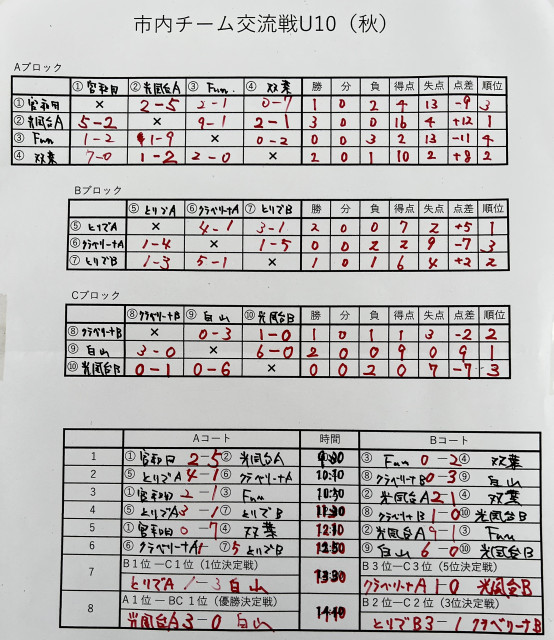 市内チーム交流戦U10（秋）
Aブロック
①宮和田 ②光風台A ③Fun. ④双葉 勝 分 負 得点 失点 点差 順位
①宮和田 × 2-5 2-1 0-7 1 0 2 4 13 -9 3
②光風台A 5-2 × 9-1 2-1 3 0 0 16 4 +12 1
③Fun 1-2 1-9 × 0-2 0 0 3 2 13 -11 4
④双葉 7-0 1-2 2-0 × 2 0 1 10 2 +8 2
Bブロック
⑤とりでA ⑥クラベリーナA ⑦とりでB 勝 分 負 得点 失点 点差 順位
⑤とりでA × 4-1 3-1 2 0 0 7 2 +5 1
⑥クラベリーナA 1-4 × 1-5 0 0 2 2 9 -7 3
⑦とりでB 1-3 5-1 × 1 0 1 6 4 +2 2
Cブロック
⑧クラベリーナB ⑨白山 ⑩光風台B 勝 分 負 得点 失点 点差 順位
⑧クラベリーナB × 0-3 1-0 1 0 1 1 3 -2 2
⑨白山 3-0 × 6-0 2 0 0 9 0 9 1
⑩光風台B 0-1 0-6 × 0 0 2 0 7 -7 3
Aコート 時間 Bコート
1 ①宮和田 2-5 ②光風台A 9:30 ③Fun 0-2 ④双葉
2 ⑤とりでA 4-1 ⑥クラベリーナA 10:10 ⑧クラベリーナB 0-3 ⑨白山
3 ①宮和田 2-1 ③Fun 10:50 ②光風台A 2-1 ④双葉
4 ⑤とりでA 3-1 ⑦とりでB 11:30 ⑧クラベリーナB 1-0 ⑩光風台B
5 ①宮和田 0-7 ④双葉 12:10 ②光風台A 9-1 ③Fun
6 ⑥クラベリーナA 1-5 ⑦とりでB 12:50 ⑨白山 6-0 ⑩光風台B
7 B1位―C1位（1位決定戦） 13:30 B3位―C3位（5位決定戦）
とりでA 1-3 白山 クラベリーナA 1-0 光風台B
8 A1位―BC1位（優勝決定戦） 14:10 B2位―C2位（3位決定戦）
光風台A 3-0 白山 とりでB 3-1 クラベリーナB